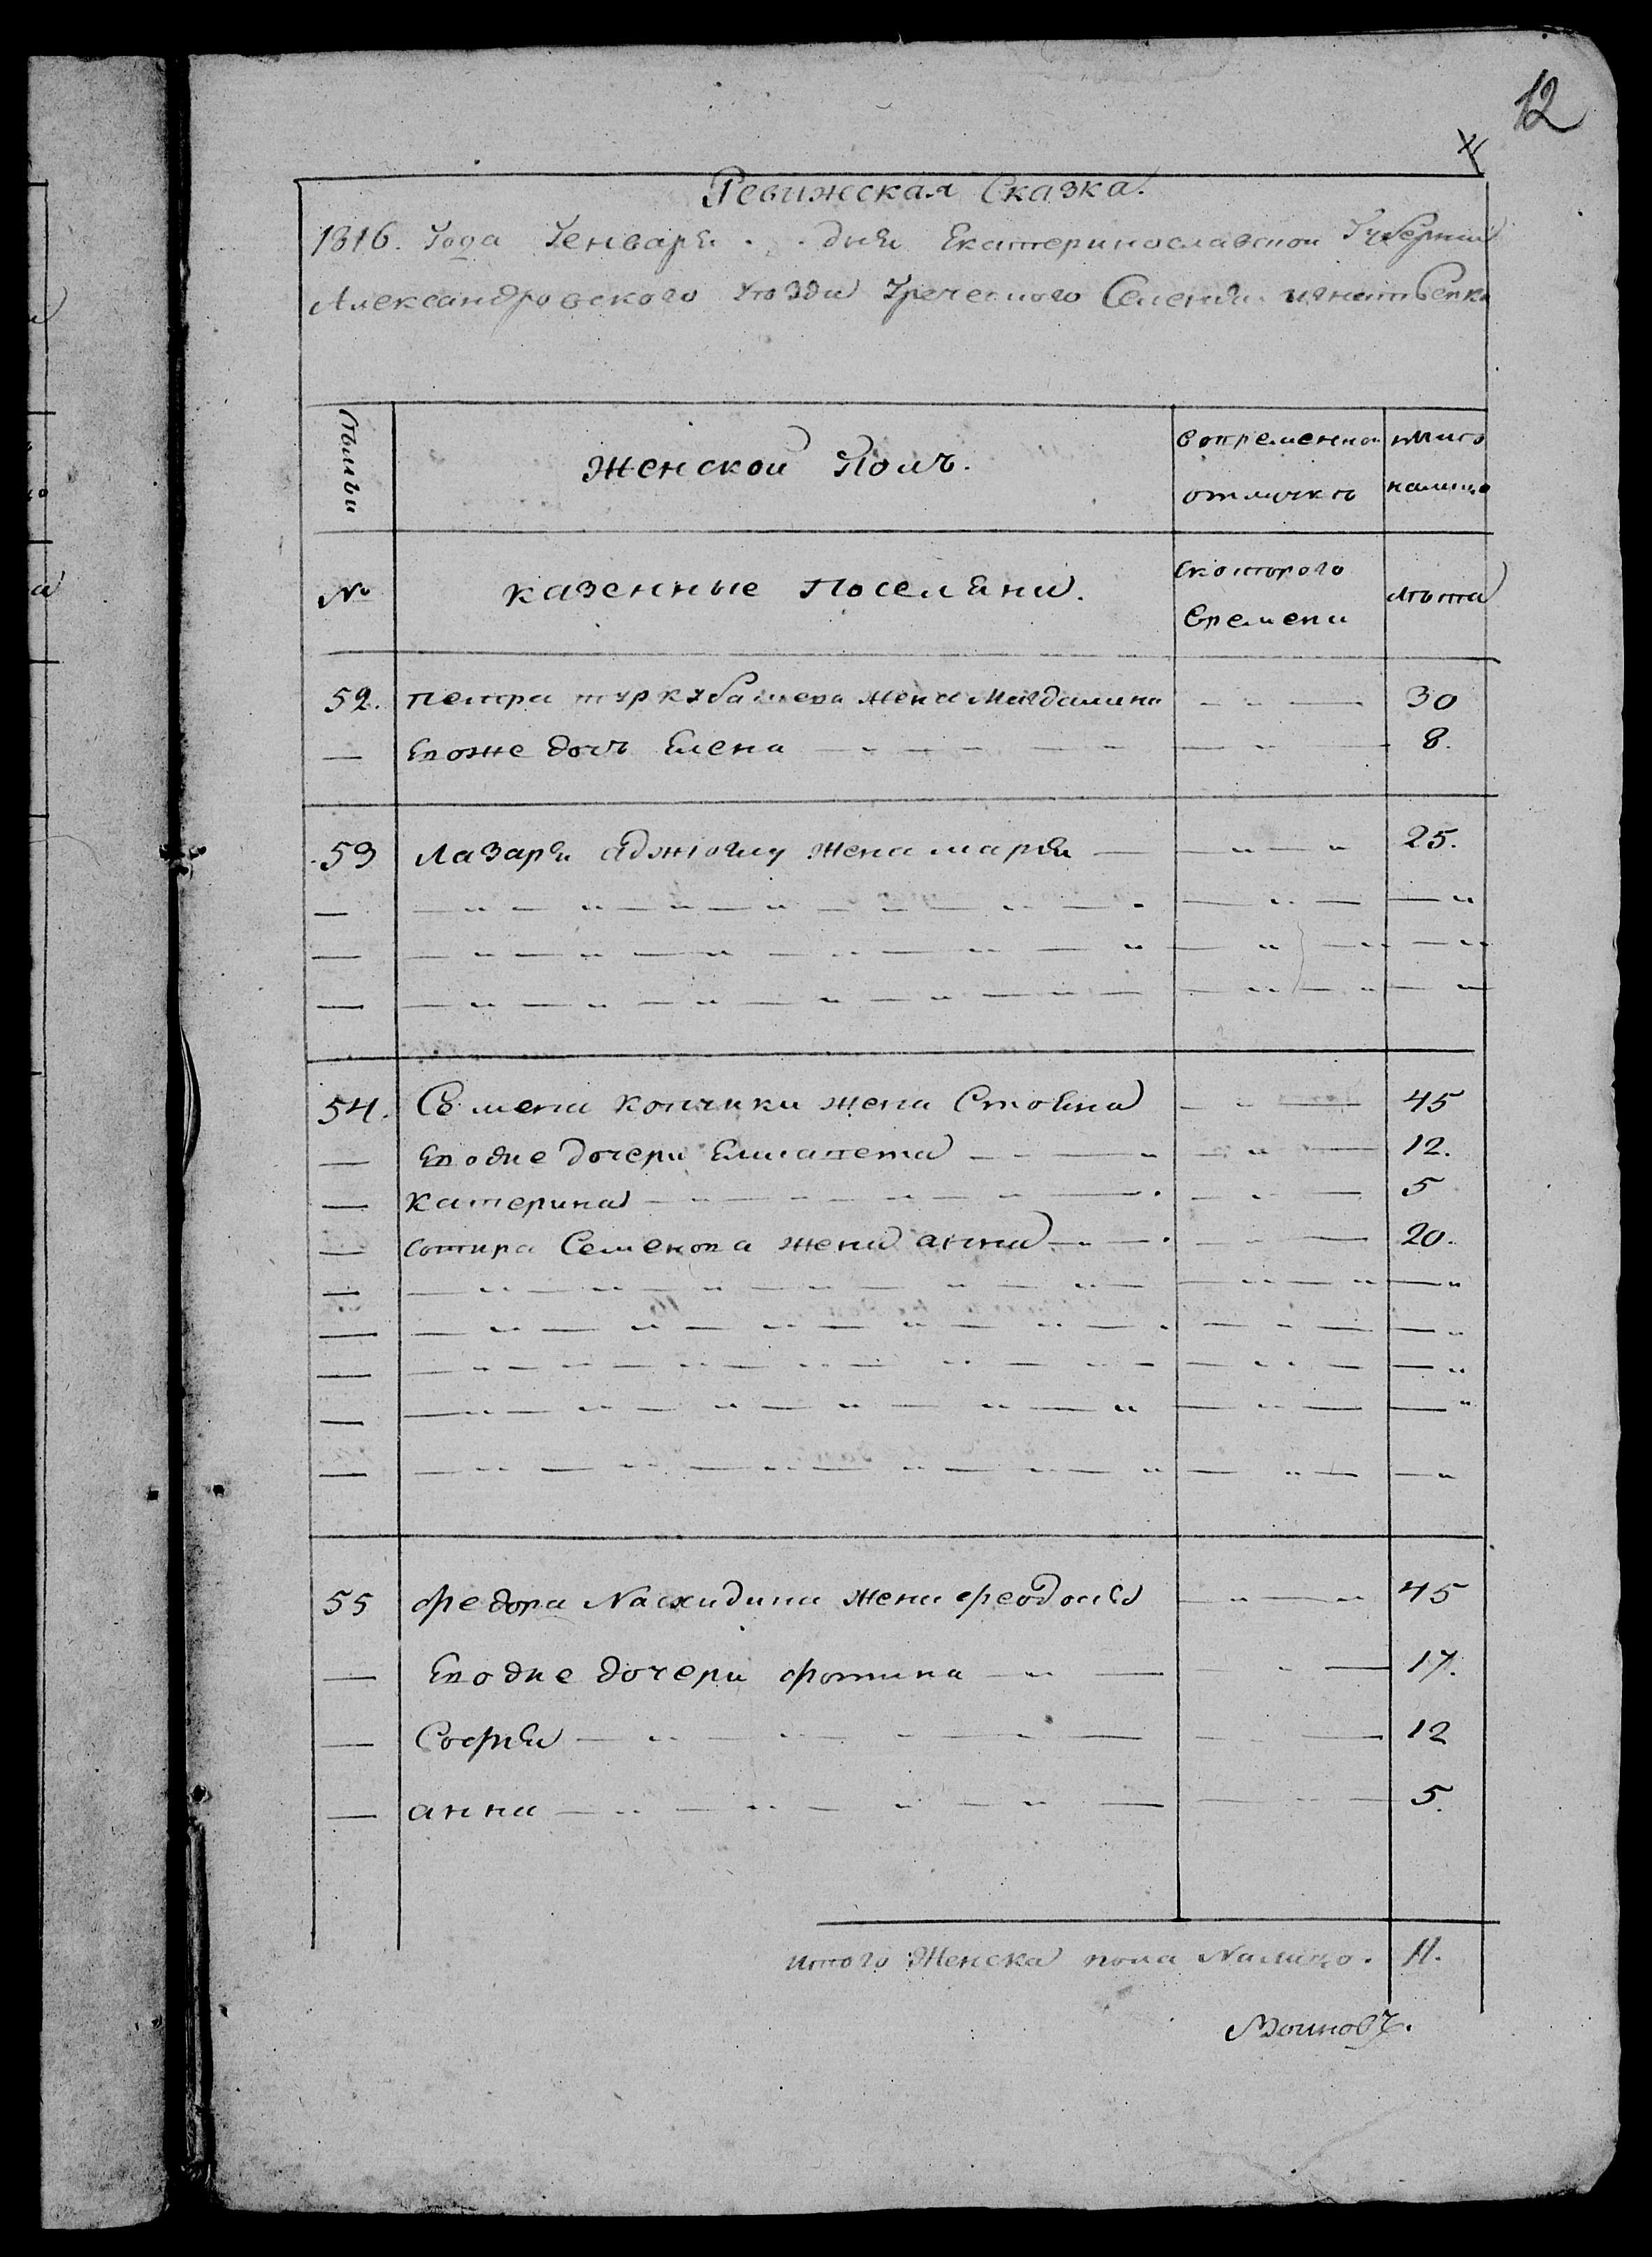 12
Ревижская Сказка.
1816. Года Генваря . . дня Екатеринославской Губернии
Александровского уезда Греческого Селения
Семьи
Женской Полъ.
вовременной
отлучке
ныне
налицо
№
казенные Поселяни.
скоторого
времени
лета
52. петра жена Магдалина — „ — 30
— Евоже дочь Елена — „ — „ — 8.
53 Лазаря аджиоглу жена марья — „ — „ 25.
— — „ — „ — „ — „ — „ — „ — „
— — „ — „ — „ — „ — „ — „ — „
— — „ — „ — „ — „ — „ — „ — „
54. Семена жена Стояна — „ — 45
— Еводне дочери Елисапета — „ — „ — 12.
— катерина — „ — „ — „ — 5
— сотира Семенова жена анна — „ — „ — 20.
— — „ — „ — „ — „ — „ — „ — „
— — „ — „ — „ — „ — „ — „ — „
— — „ — „ — „ — „ — „ — „ — „
— — „ — „ — „ — „ — „ — „ — „
— — „ — „ — „ — „ — „ — „ — „
55 федора жена феодосья — „ — „ 45
— Еводне дочери фотина — „ — „ — 17.
— Софья — „ — „ — „ — „ — 12
— анна — „ — „ — „ — „ — 5.
итого Женска пола Налицо. 11.